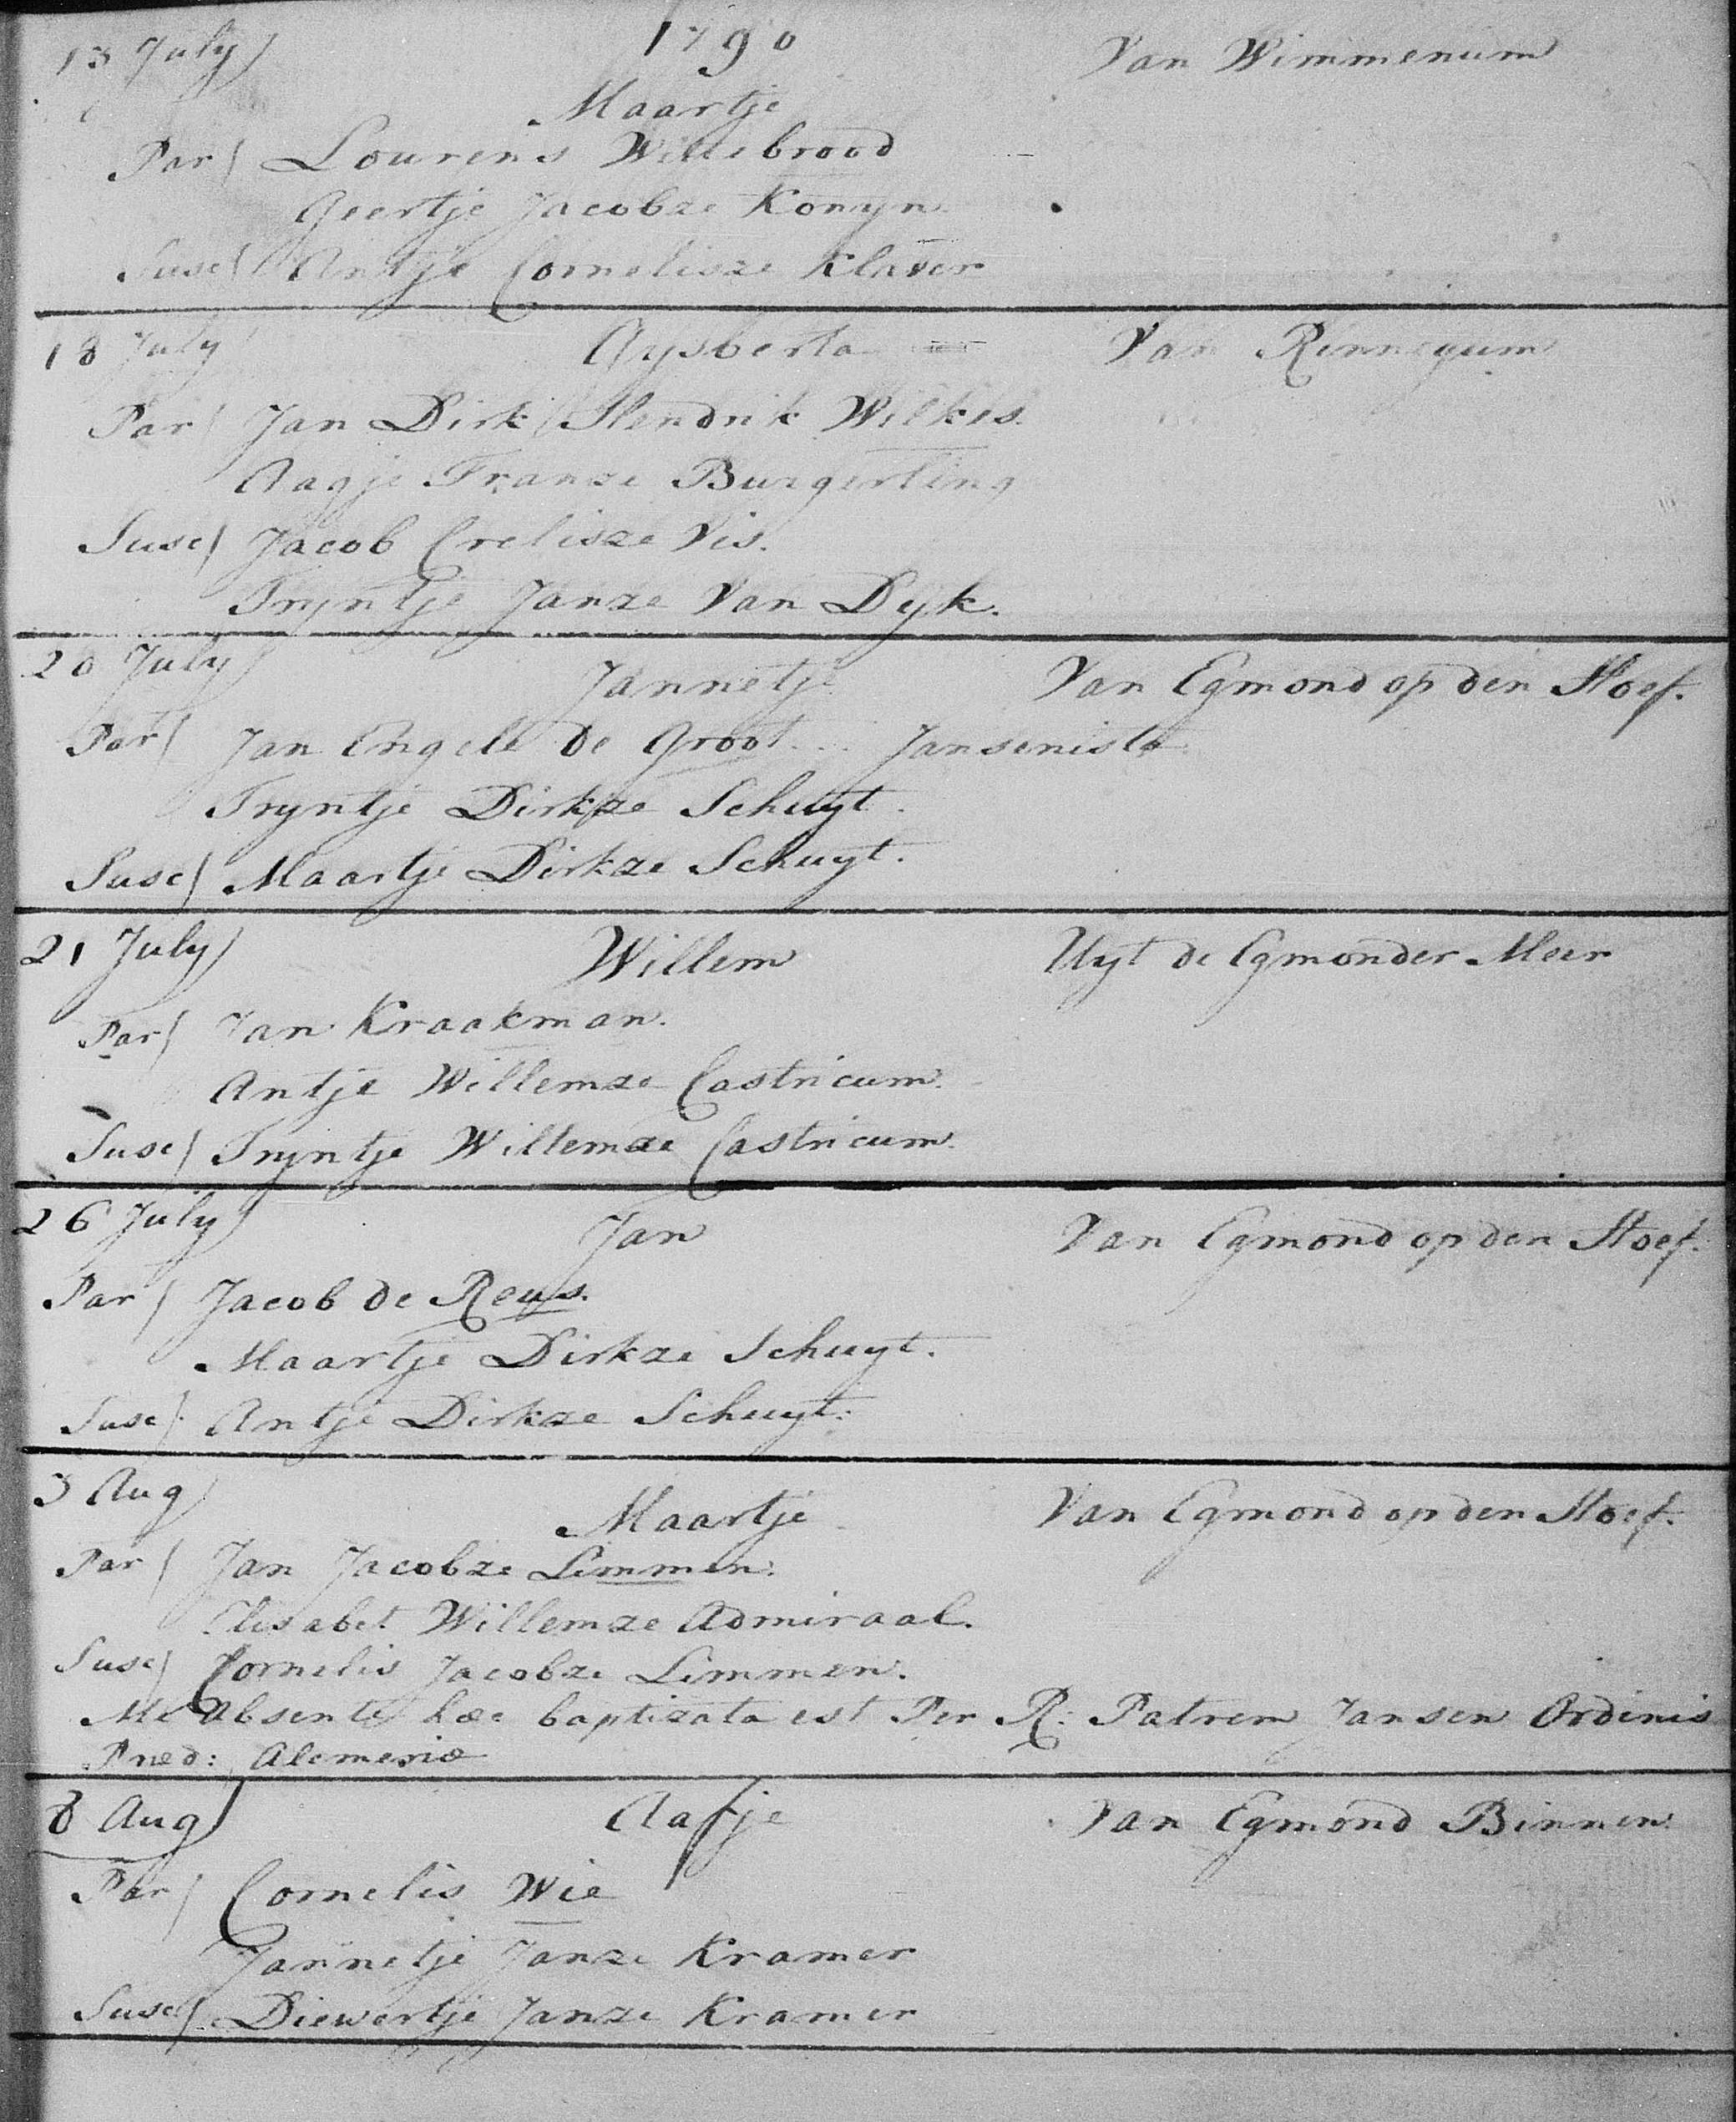 1790
13 July) Van Wimmenum
Maartje
Par/ Lourens Willebrood
Geertje Jacobze Konyn.
Susc/ Antje Cornelisze Klaver
18 July Gysberta Van Rinnegum
Par/ Jan Dirk Hendrik Wilkes.
Aagje Franze Burgerling
Susc/ Jacob Crelisze Vis.
Tryntje Janze Van Dyk.
20 July) Jannetje Van Egmond op den Hoef.
Par/ Jan Engele de Groot... Jansenista
Tryntje Dirkze Schuyt.
Susc/ Maartje Dirkze Schuyt.
21 July) Willem Uyt de Egmonder Meer
Par/ Jan Kraakman.
Antje Willemze Castricum.
Susc/ Tryntje Willemze Castricum.
26 July) Jan Van Egmond op den Hoef.
Par/ Jacob de Reus.
Maartje Dirkze Schuyt.
Susc/ Antje Dirkze Schuyt.
3 Aug) Maartje Van Egmond op den Hoef.
Par/ Jan Jacobze Limmen.
Elisabet Willemze Admiraal.
Susc/ Cornelis Jacobze Limmen.
Me Absente hæc baptizata est Per R: Patrem Jansen Ordinis
Pred: Alcmeriæ
8 Aug) Aafje Van Egmond Binnen
Par/ Cornelis Wie
Jannetje Janze Kramer
Susc/ Diewertje Janze Kramer